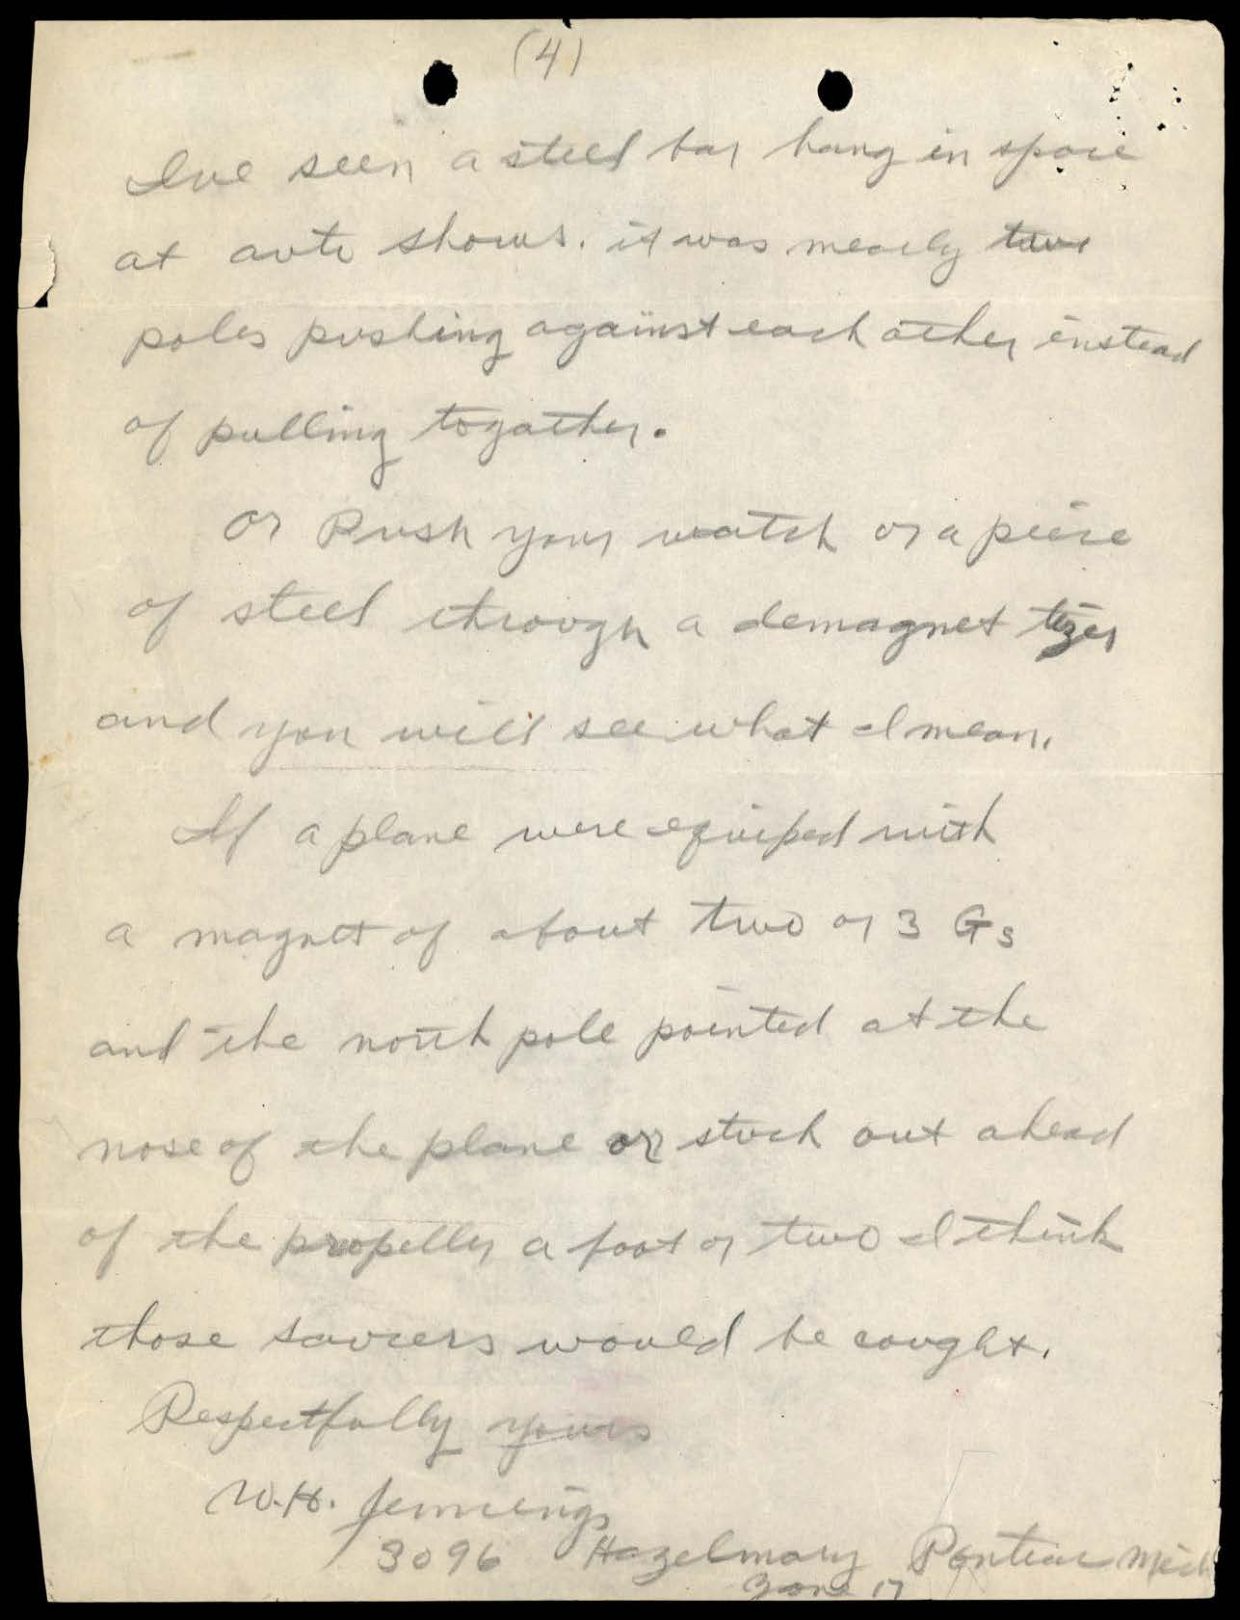 (4)
Ive seen a steel bar hang in space
at auto shows. it was mearly two
poles pushing against each other instead
of pulling togather.
or Push your watch or a peice
of steel through a demagnet tizer
and you will see what I mean.
If a plane were equiped with
a magnet of about two or 3 Gs
and the north pole pointed at the
nose of the plane or stuck out ahead
of the propeller a foot or two I think
those saucers would be caught.
Respectfully yours
W.H. Jennings
3096 Hazelmary Pontiac Mich
Zone 17